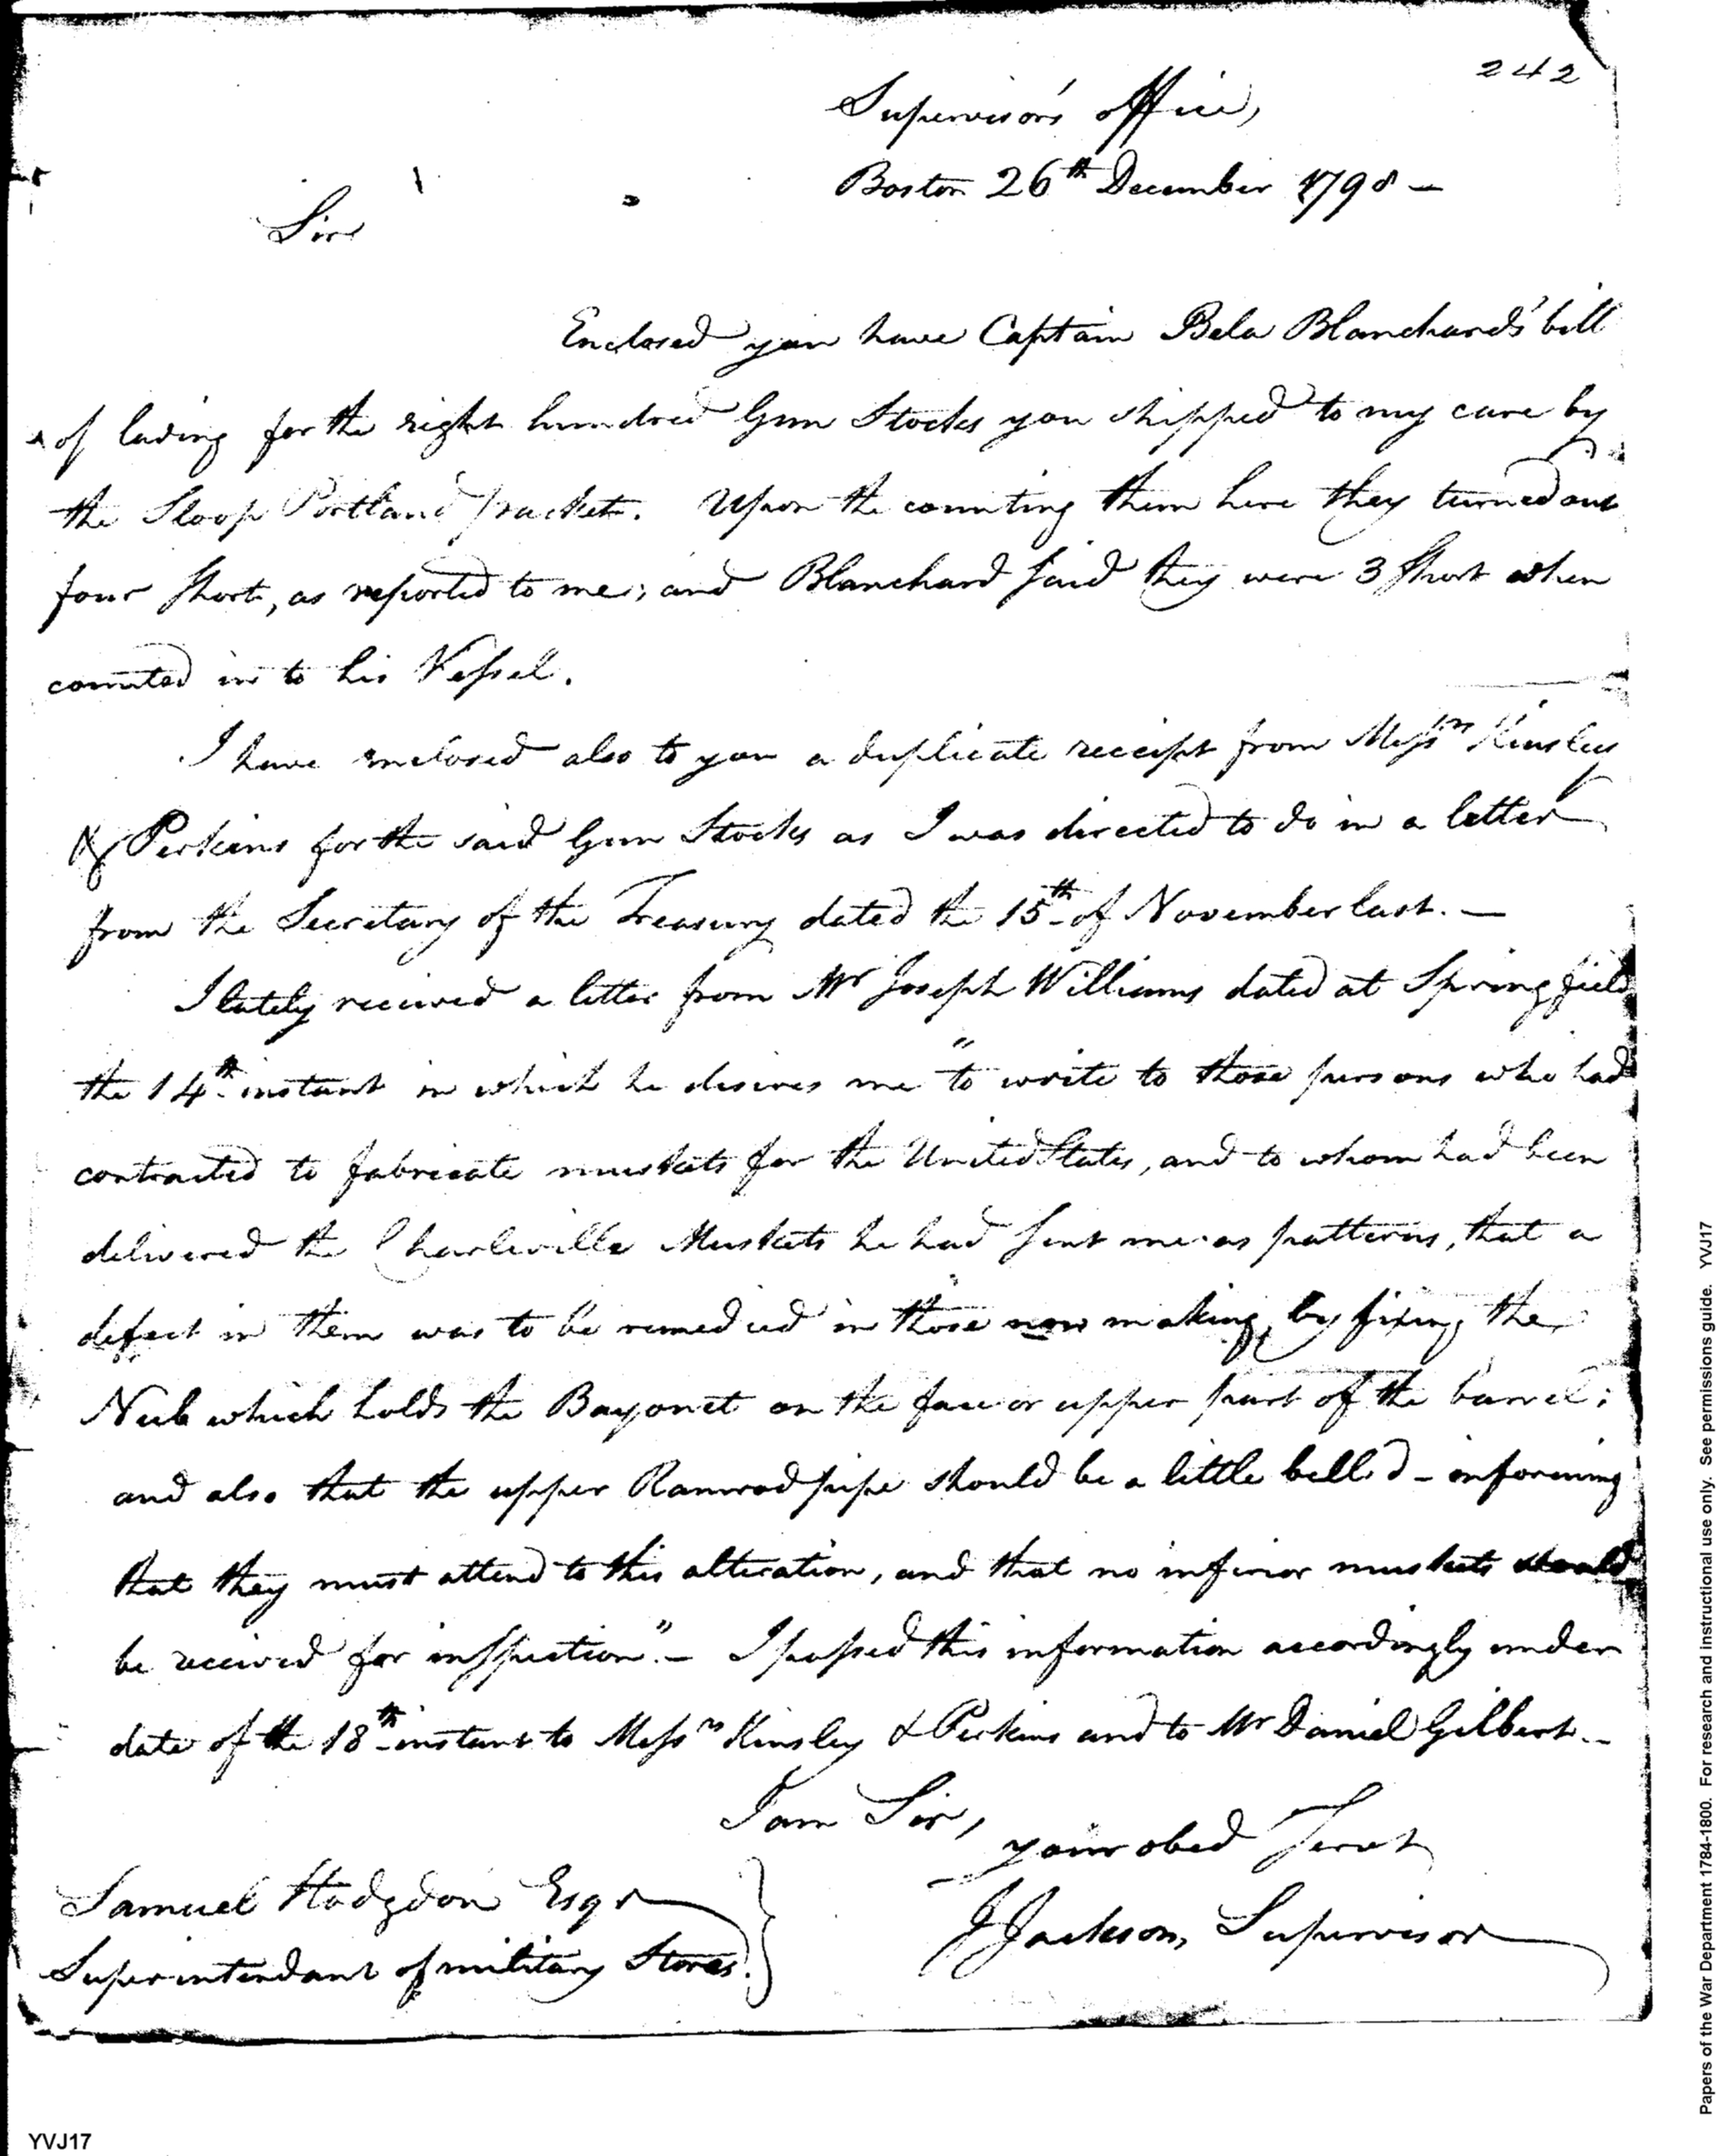 242
Supervisor's office,
Boston 26th December 1798 —
Sir
Enclosed you have Captain Bela Blanchard's bill
of lading for the eight hundred Gun Stocks you shipped to my care by
the Sloop Portland packet. Upon the counting them here they turned out
four short, as reported to me; and Blanchard said they were 3 short when
counted in to his Vessel.
I have enclosed also to you a duplicate receipt from Messrs Kinsley
& Perkins for the said Gun Stocks as I was directed to do in a letter
from the Secretary of the Treasury dated the 15th of November last. —
I lately received a letter from Mr Joseph Williams dated at Springfield
the 14th instant in which he desires me "to write to those persons who had
contracted to fabricate muskets for the United States, and to whom had been
delivered the Charleville Muskets he had sent me as patterns, that a
defect in them was to be remedied in those now making, by fixing the
Nub which holds the Bayonet on the face or upper part of the barrel;
and also that the upper Ramrod pipe should be a little bell'd - informing
that they must attend to this alteration, and that no inferior muskets should
be received for inspection". — I passed this information accordingly under
date of the 18th instant to Messrs Kinsley & Perkins and to Mr Daniel Gilbert. —
I am Sir,
your obed Servt
J Jackson, Supervisor
Samuel Hodgdon Esqr
Superintendant of military Stores.
Papers of the War Department 1784-1800. For research and instructional use only. See permissions guide. YVJ17
YVJ17